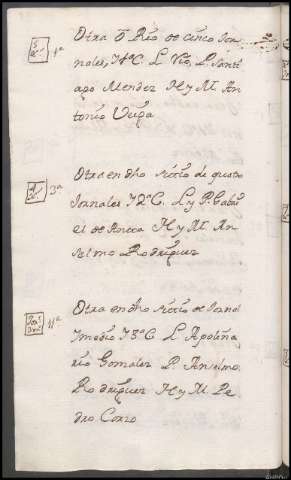 Otra Rio de cinco Jor
nales, 74ªC L Rio. P. Santi
ago Mendez H y M. An
tonio
3ª
Otra en dho sitio de quatro
Jornales 72ªC. L y P. Gabri
el de Aneca H y M. An
selmo Rodriguez
Otra en dho sitio de Jornal
y medio 73ªC L Apolina
rio Gomalez P. Anselmo
Rodriguez H y M. Pe
dro Corzo